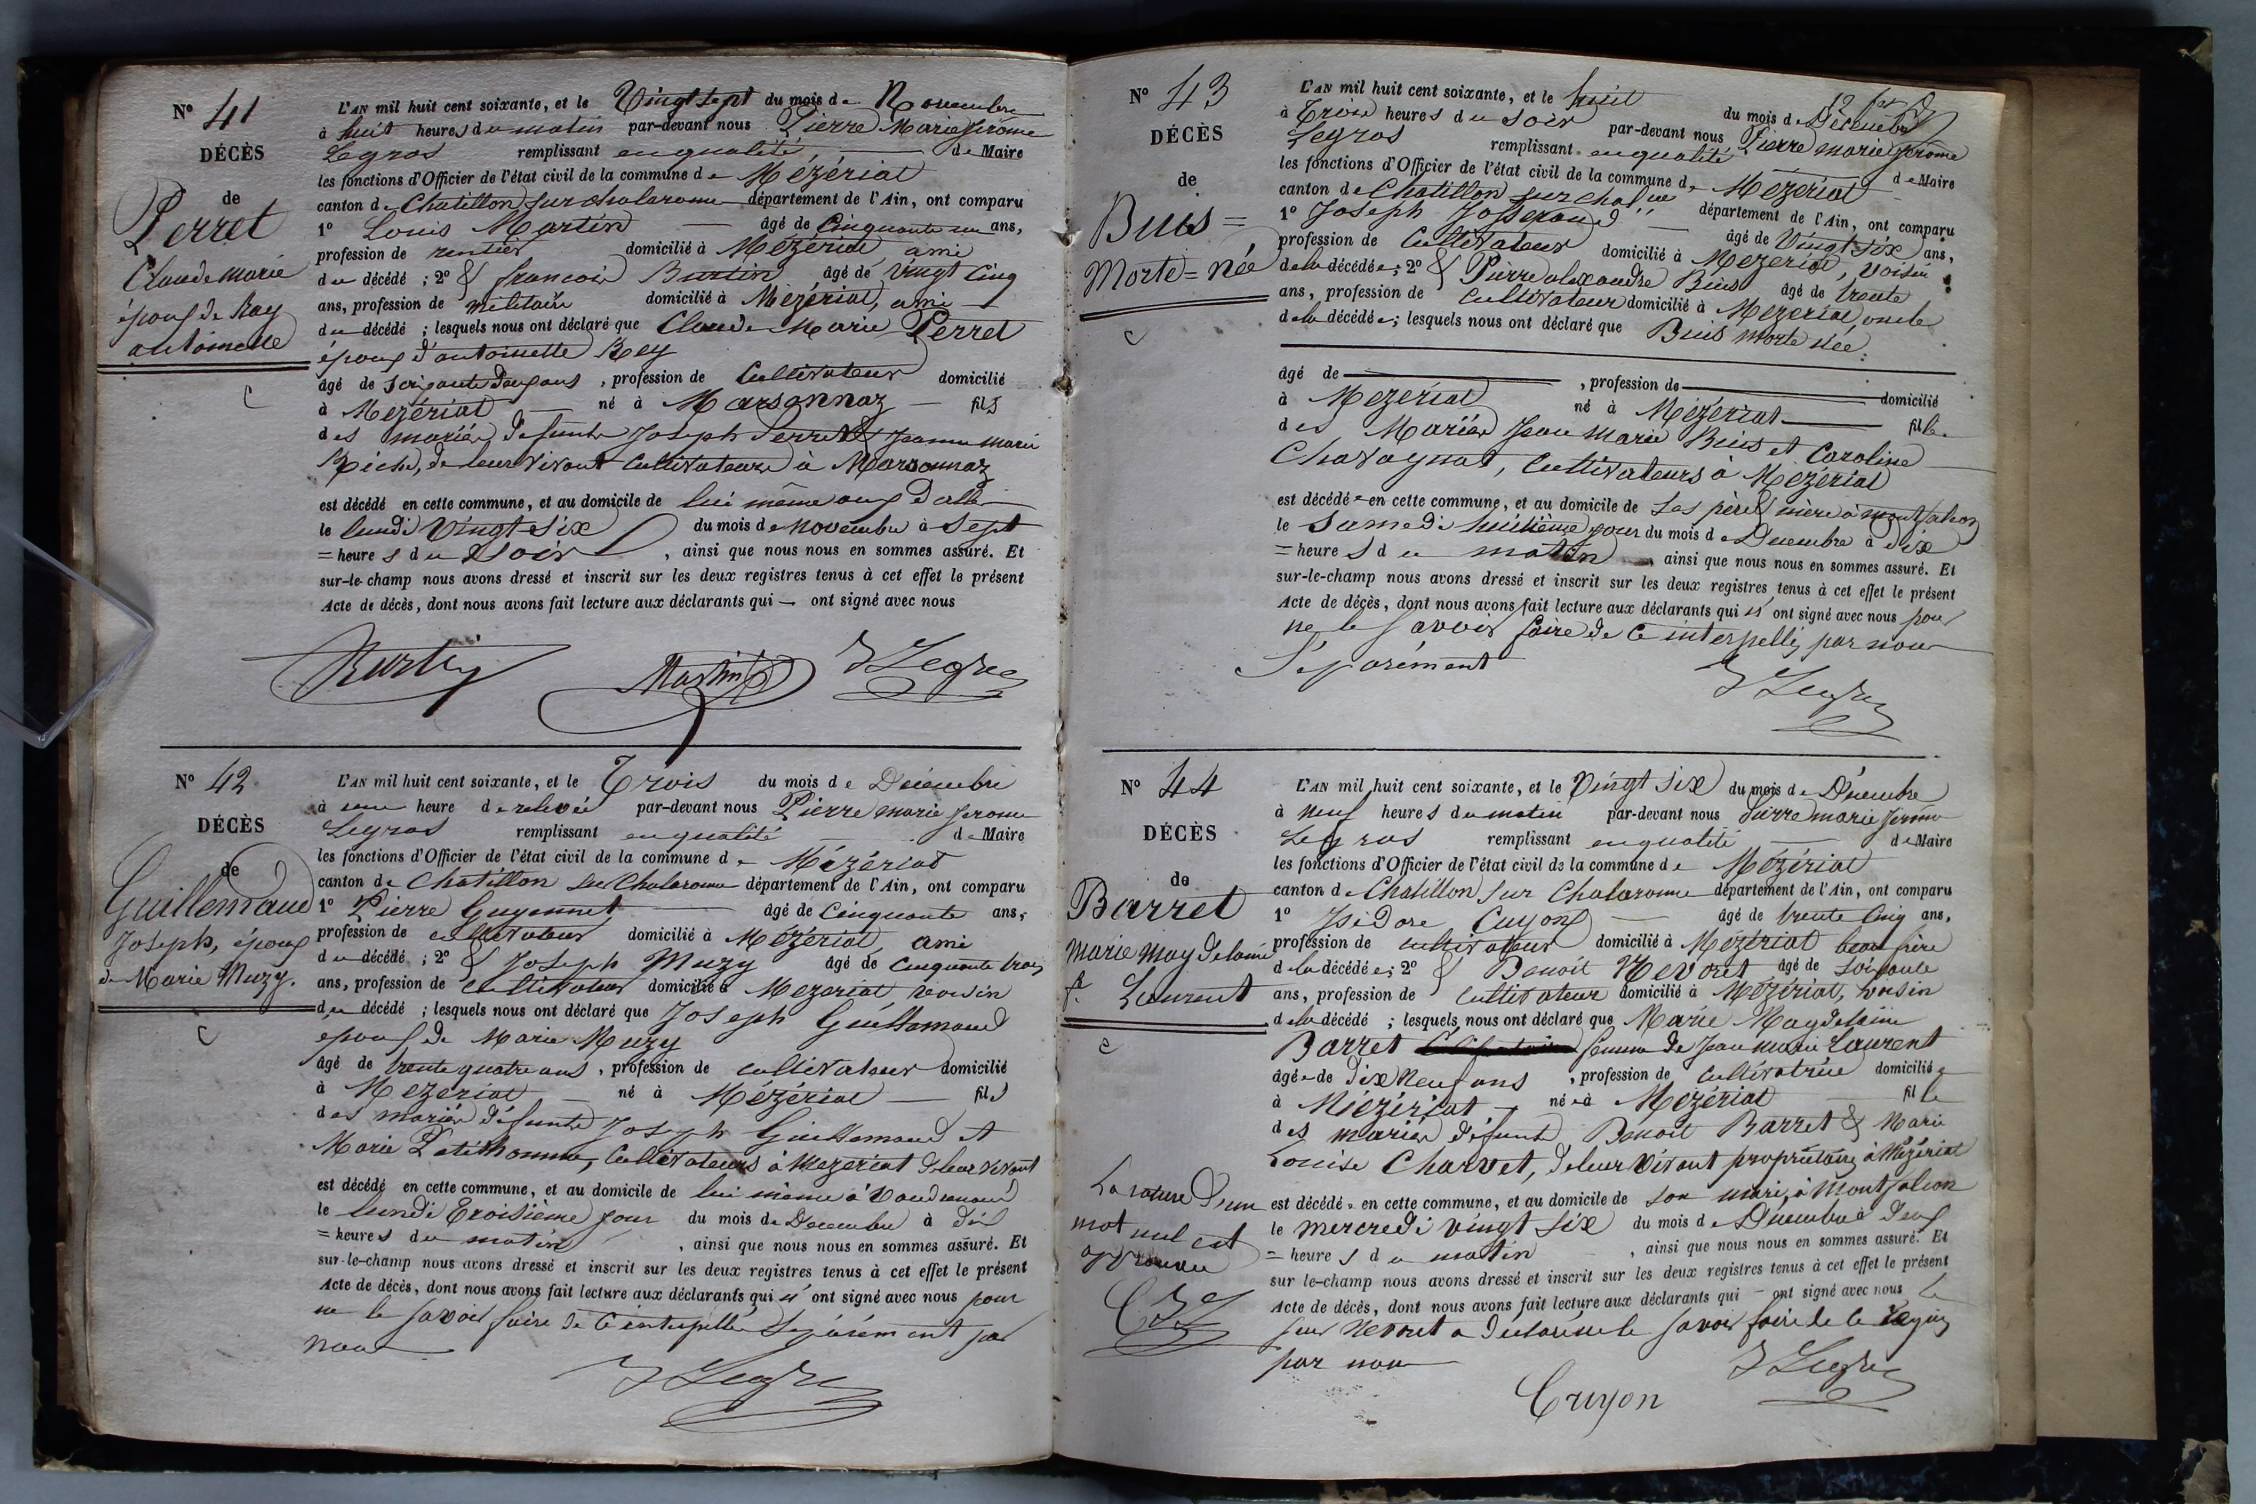 Nº 41
DÉCÈS
de
Perret
Claude Marie
époux de Ray
antoinette
L'AN mil huit cent soixante, et le Vingt sept du mois de Novembre
à huit heures du matin par-devant nous Pierre Marie Jérôme
Legros remplissant en qualité de Maire
les fonctions d'Officier de l'état civil de la commune de Mézériat
canton de Chatillon sur chalaronne département de l'Ain, ont comparu
1º Louis Martin âgé de Cinquante un ans,
profession de rentier domicilié à Mézériat ami
du décédé ; 2º & francois Burtin âgé de vingt Cinq
ans, profession de militaire domicilié à Mézériat, ami
du décédé ; lesquels nous ont déclaré que Claude Marie Perret
époux d'antoinette Rey
âgé de soixante deux ans, profession de Cultivateur domicilié
à Mezériat né à Marsonnaz fils
des mariés défunts Joseph Perret & Jeanne marie
Biche, de leur vivant Cultivateurs à Marsonnaz
est décédé en cette commune, et au domicile de lui même
le lundi Vingt six du mois de novembre à Sept
= heures du Soir, ainsi que nous nous en sommes assuré. Et
sur-le-champ nous avons dressé et inscrit sur les deux registres tenus à cet effet le présent
Acte de décès, dont nous avons fait lecture aux déclarants qui — ont signé avec nous
Burtin Martin J Legros
Nº 42
DÉCÈS
de
Guillemaud
Joseph, époux
de Marie Muzy.
L'AN mil huit cent soixante, et le Trois du mois de Décembre
à une heure de relevée par-devant nous Pierre marie Jerome
Legros remplissant en qualité de Maire
les fonctions d'Officier de l'état civil de la commune de Mézériat
canton de Chatillon sur Chalaronne département de l'Ain, ont comparu
1º Pierre Guyonnet âgé de Cinquante ans,
profession de cultivateur domicilié à Mézériat, ami
du décédé ; 2º & Joseph Muzy âgé de Cinquante trois
ans, profession de Cultivateur domicilié à Mezeriat voisin
du décédé ; lesquels nous ont déclaré que Joseph Guillemaud
époux de Marie Muzy
âgé de trente quatre ans, profession de cultivateur domicilié
à Mezeriat né à Mézériat fils
des mariés défunts Joseph Guillemaud et
Marie Petithomme, Cultivateurs à Mezeriat de leur vivant
est décédé en cette commune, et au domicile de lui même à
le lundi Troisieme jour du mois de Decembre à dix
= heures du matin, ainsi que nous nous en sommes assuré. Et
sur-le-champ nous avons dressé et inscrit sur les deux registres tenus à cet effet le présent
Acte de décès, dont nous avons fait lecture aux déclarants qui n' ont signé avec nous pour
ne le savoir faire de ce interpellés séparément par
nous
J Legros
Nº 43
DÉCÈS
de
Buis =
Morte = née
L'AN mil huit cent soixante, et le huit du mois de Décembre
à Trois heures du soir par-devant nous Pierre marie Jérôme
Legros remplissant en qualité de Maire
les fonctions d'Officier de l'état civil de la commune de Mézériat
canton de Chatillon sur chalne département de l'Ain, ont comparu
1º Joseph Josserand âgé de Vingt six ans,
profession de Cultivateur domicilié à Mezeriat, voisin
de la décédée ; 2º & Pierre alexandre Buis âgé de trente
ans, profession de Cultivateur domicilié à Mezeriat oncle
de la décédée ; lesquels nous ont déclaré que Buis morte née.
âgé de , profession de domicilié
à Mezériat né à Mézériat fille
des Mariés Jean Marie Buis et Caroline
Chavagnat, Cultivateurs à Mézériat
est décédé e en cette commune, et au domicile de ses père & mère à montfalcon
le Samedi huitième jour du mois de Décembre à dix
= heures du matin, ainsi que nous nous en sommes assuré. Et
sur-le-champ nous avons dressé et inscrit sur les deux registres tenus à cet effet le présent
Acte de décès, dont nous avons fait lecture aux déclarants qui n' ont signé avec nous pour
ne le savoir faire de ce interpellés par nous
Séparément
J Legros
Nº 44
DÉCÈS
de
Barret
Marie Magdelaine
fe Laurent
L'AN mil huit cent soixante, et le Vingt six du mois de Décembre
à neuf heures du matin par-devant nous Pierre marie Jérome
Legros remplissant en qualité de Maire
les fonctions d'Officier de l'état civil de la commune de Mézériat
canton de Chatillon sur Chalaronne département de l'Ain, ont comparu
1º Isidore Cuyon âgé de trente Cinq ans,
profession de cultivateur domicilié à Mézériat beau frère
de la décédée ; 2º & Benoit Nevoret âgé de soixante
ans, profession de Cultivateur domicilié à Mézériat, voisin
de la décédé ; lesquels nous ont déclaré que Marie Magdelaine
Barret femme de Jean marie Laurent
âgée de dix neuf ans, profession de Cultivatrice domiciliée
à Mézériat née à Mezériat fille
des mariés défunts Benoit Barret & Marie
Louise Charvet, de leur vivant propriétaires à Mézériat
est décédé e en cette commune, et au domicile de son mari, à Montfalcon
le mercredi vingt six du mois de Décembre à deux
= heures du matin, ainsi que nous nous en sommes assuré. Et
sur le-champ nous avons dressé et inscrit sur les deux registres tenus à cet effet le présent
Acte de décès, dont nous avons fait lecture aux déclarants qui — ont signé avec nous le
sieur Nevoret a déclaré ne le savoir faire de ce requis
par nous
La rature d'un
mot nul est
approuvée
J Legros
Cuyon